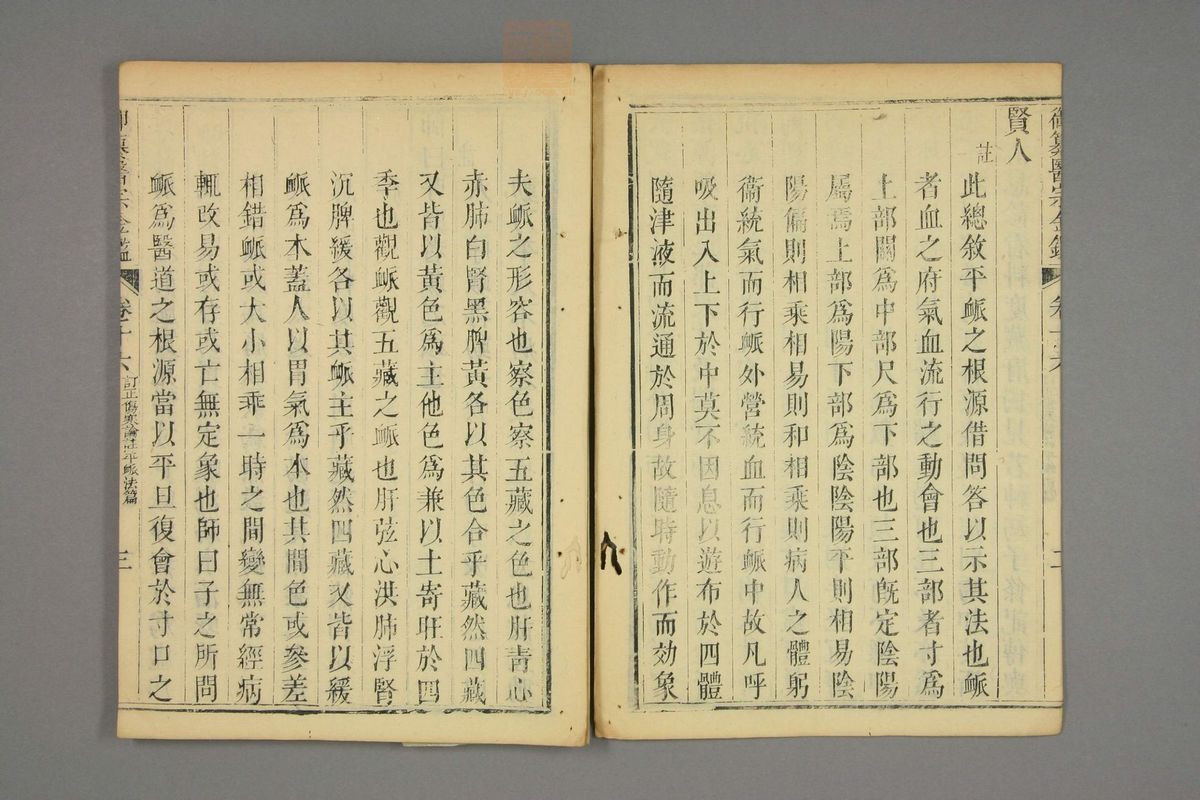 御纂醫宗金鑑 卷十六 二
賢人
註
此總敘平𧖴之根源借問答以示其法也𧖴
者血之府氣血流行之動會也三部者寸爲
上部關爲中部尺爲下部也三部旣定陰陽
屬焉上部爲陽下部爲陰陰陽平則相易陰
陽偏則相乘相易則和相乘則病人之體躬
衞統氣而行𧖴外營統血而行𧖴中故凡呼
吸出入上下於中莫不因息以遊布於四體
隨津液而流通於周身故隨時動作而効象
夫𧖴之形容也察色察五藏之色也肝靑心
赤肺白腎黑脾黃各以其色合乎藏然四藏
又皆以黃色爲主他色爲兼以土寄旺於四
季也觀𧖴觀五藏之𧖴也肝弦心洪肺浮腎
沉脾緩各以其𧖴主乎藏然四藏又皆以緩
𧖴爲本蓋人以胃氣爲本也其間色或參差
相錯𧖴或大小相乖一時之間變無常經病
輒改易或存或亡無定象也師曰子之所問
𧖴爲醫道之根源當以平旦復會於寸口之
御纂醫宗金鑑 卷十六 訂正傷寒論註平𧖴法篇 三